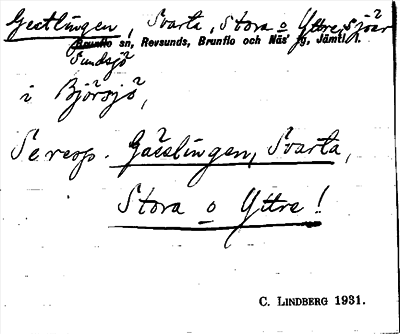 Gietlingen, Svarta, Stora o Yttre sjöar
Brunflo sn, Revsunds, Brunflo och Näs' tg, Jämtl. l.
Sundsjö
i Björsjö,
Se resp. Gåsslingen, Svarta,
Stora o Yttre!
C. LINDBERG 1931.